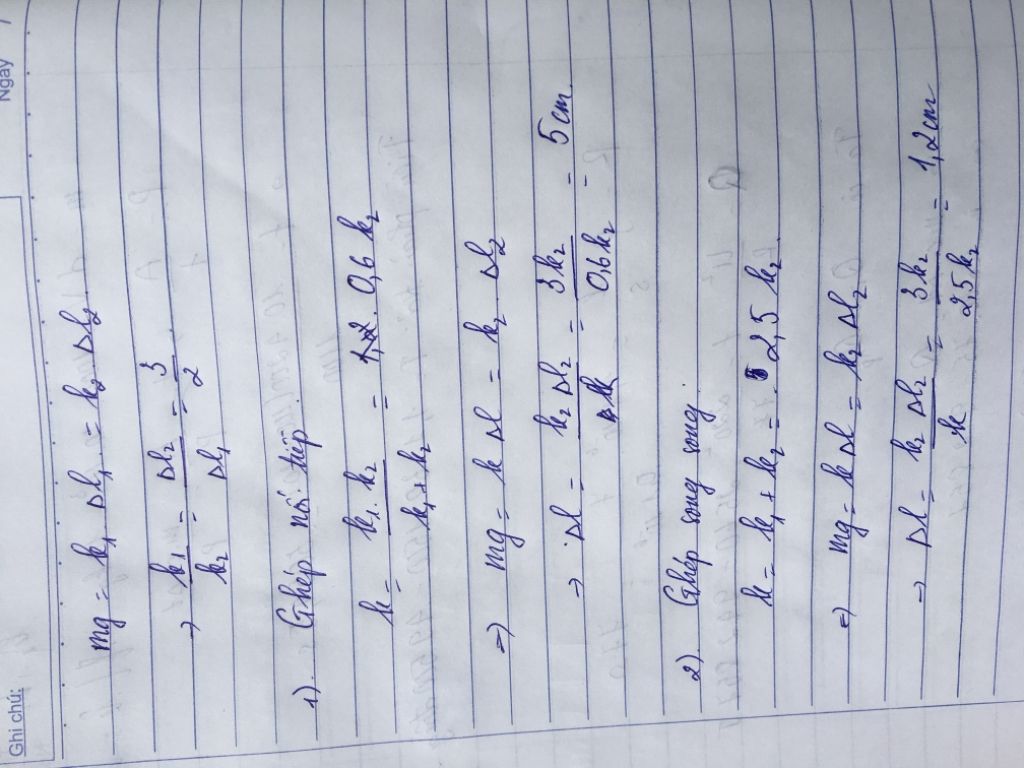 Ghi chú:
Ngày
mg = k₁ Δl₁ = k₂ Δl₂
→ k₁/k₂ = Δl₂/Δl₁ = 3/2
1). Ghép nối tiếp
k = k₁.k₂/(k₁+k₂) = 0,6 k₂
⇒ mg = k Δl = k₂ Δl₂
→ Δl = k₂ Δl₂/k = 3k₂/0,6k₂ = 5cm
2) Ghép song song.
k = k₁ + k₂ = 2,5 k₂
⇒ mg = k Δl = k₂ Δl₂
→ Δl = k₂ Δl₂/k = 3k₂/2,5k₂ = 1,2cm